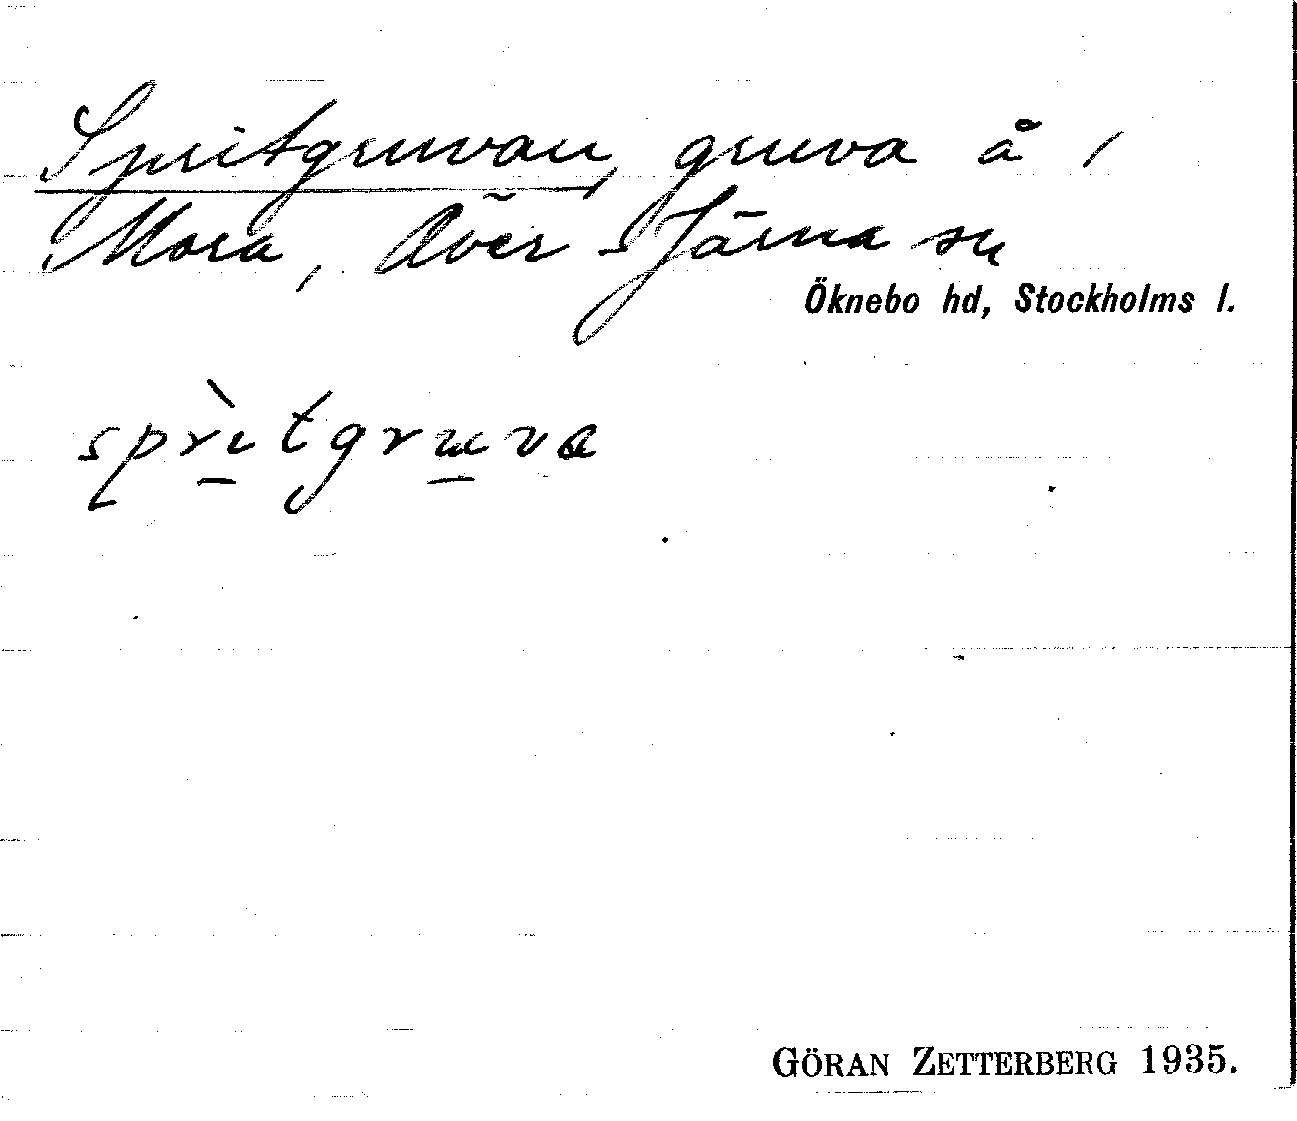 Spritgruvan, gruva å /
Mora, Över-Järna sn
Öknebo hd, Stockholms l.
sprìtgruva
GÖRAN ZETTERBERG 1935.